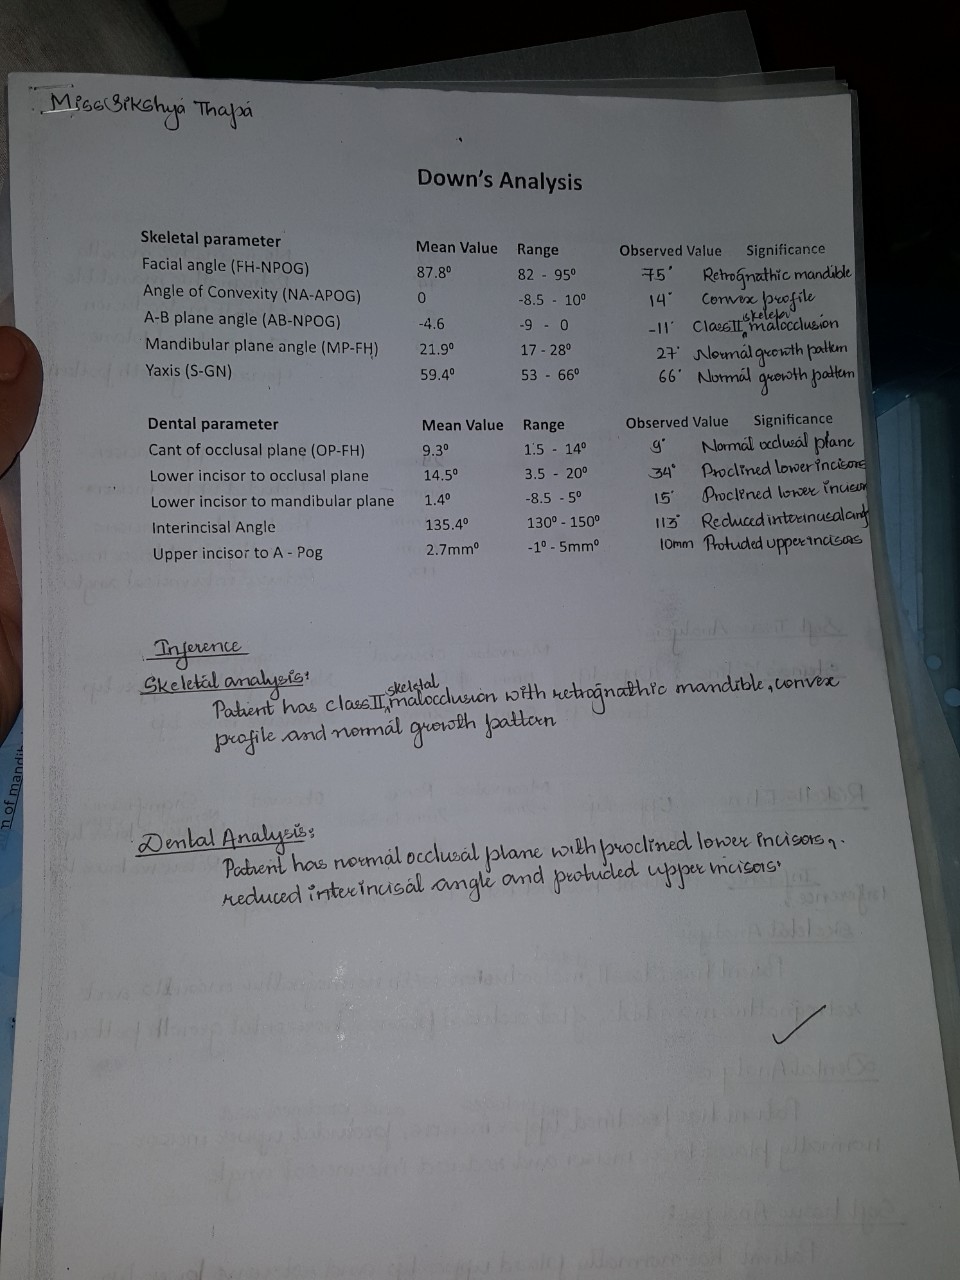 Miss Sikshya Thapa
Down's Analysis
Skeletal parameter Mean Value Range Observed Value Significance
Facial angle (FH-NPOG) 87.8⁰ 82 - 95⁰ 75° Retrognathic mandible
Angle of Convexity (NA-APOG) 0 -8.5 - 10⁰ 14° Convex profile
A-B plane angle (AB-NPOG) -4.6 -9 - 0 -11° Class II skeletal malocclusion
Mandibular plane angle (MP-FH) 21.9⁰ 17 - 28⁰ 27° Normal growth pattern
Yaxis (S-GN) 59.4⁰ 53 - 66⁰ 66° Normal growth pattern
Dental parameter Mean Value Range Observed Value Significance
Cant of occlusal plane (OP-FH) 9.3⁰ 1.5 - 14⁰ 9° Normal occlusal plane
Lower incisor to occlusal plane 14.5⁰ 3.5 - 20⁰ 34° Proclined lower incisors
Lower incisor to mandibular plane 1.4⁰ -8.5 - 5⁰ 15° Proclined lower incisor
Interincisal Angle 135.4⁰ 130⁰ - 150⁰ 113° Reduced interincisal
Upper incisor to A - Pog 2.7mm⁰ -1⁰ - 5mm⁰ 10mm Protuded upper incisors
Inference
Skeletal analysis:
Patient has class II skeletal malocclusion with retrognathic mandible, convex
profile and normal growth pattern
Dental Analysis:
Patient has normal occlusal plane with proclined lower incisors,
reduced interincisal angle and protuded upper incisors.
n of mandib